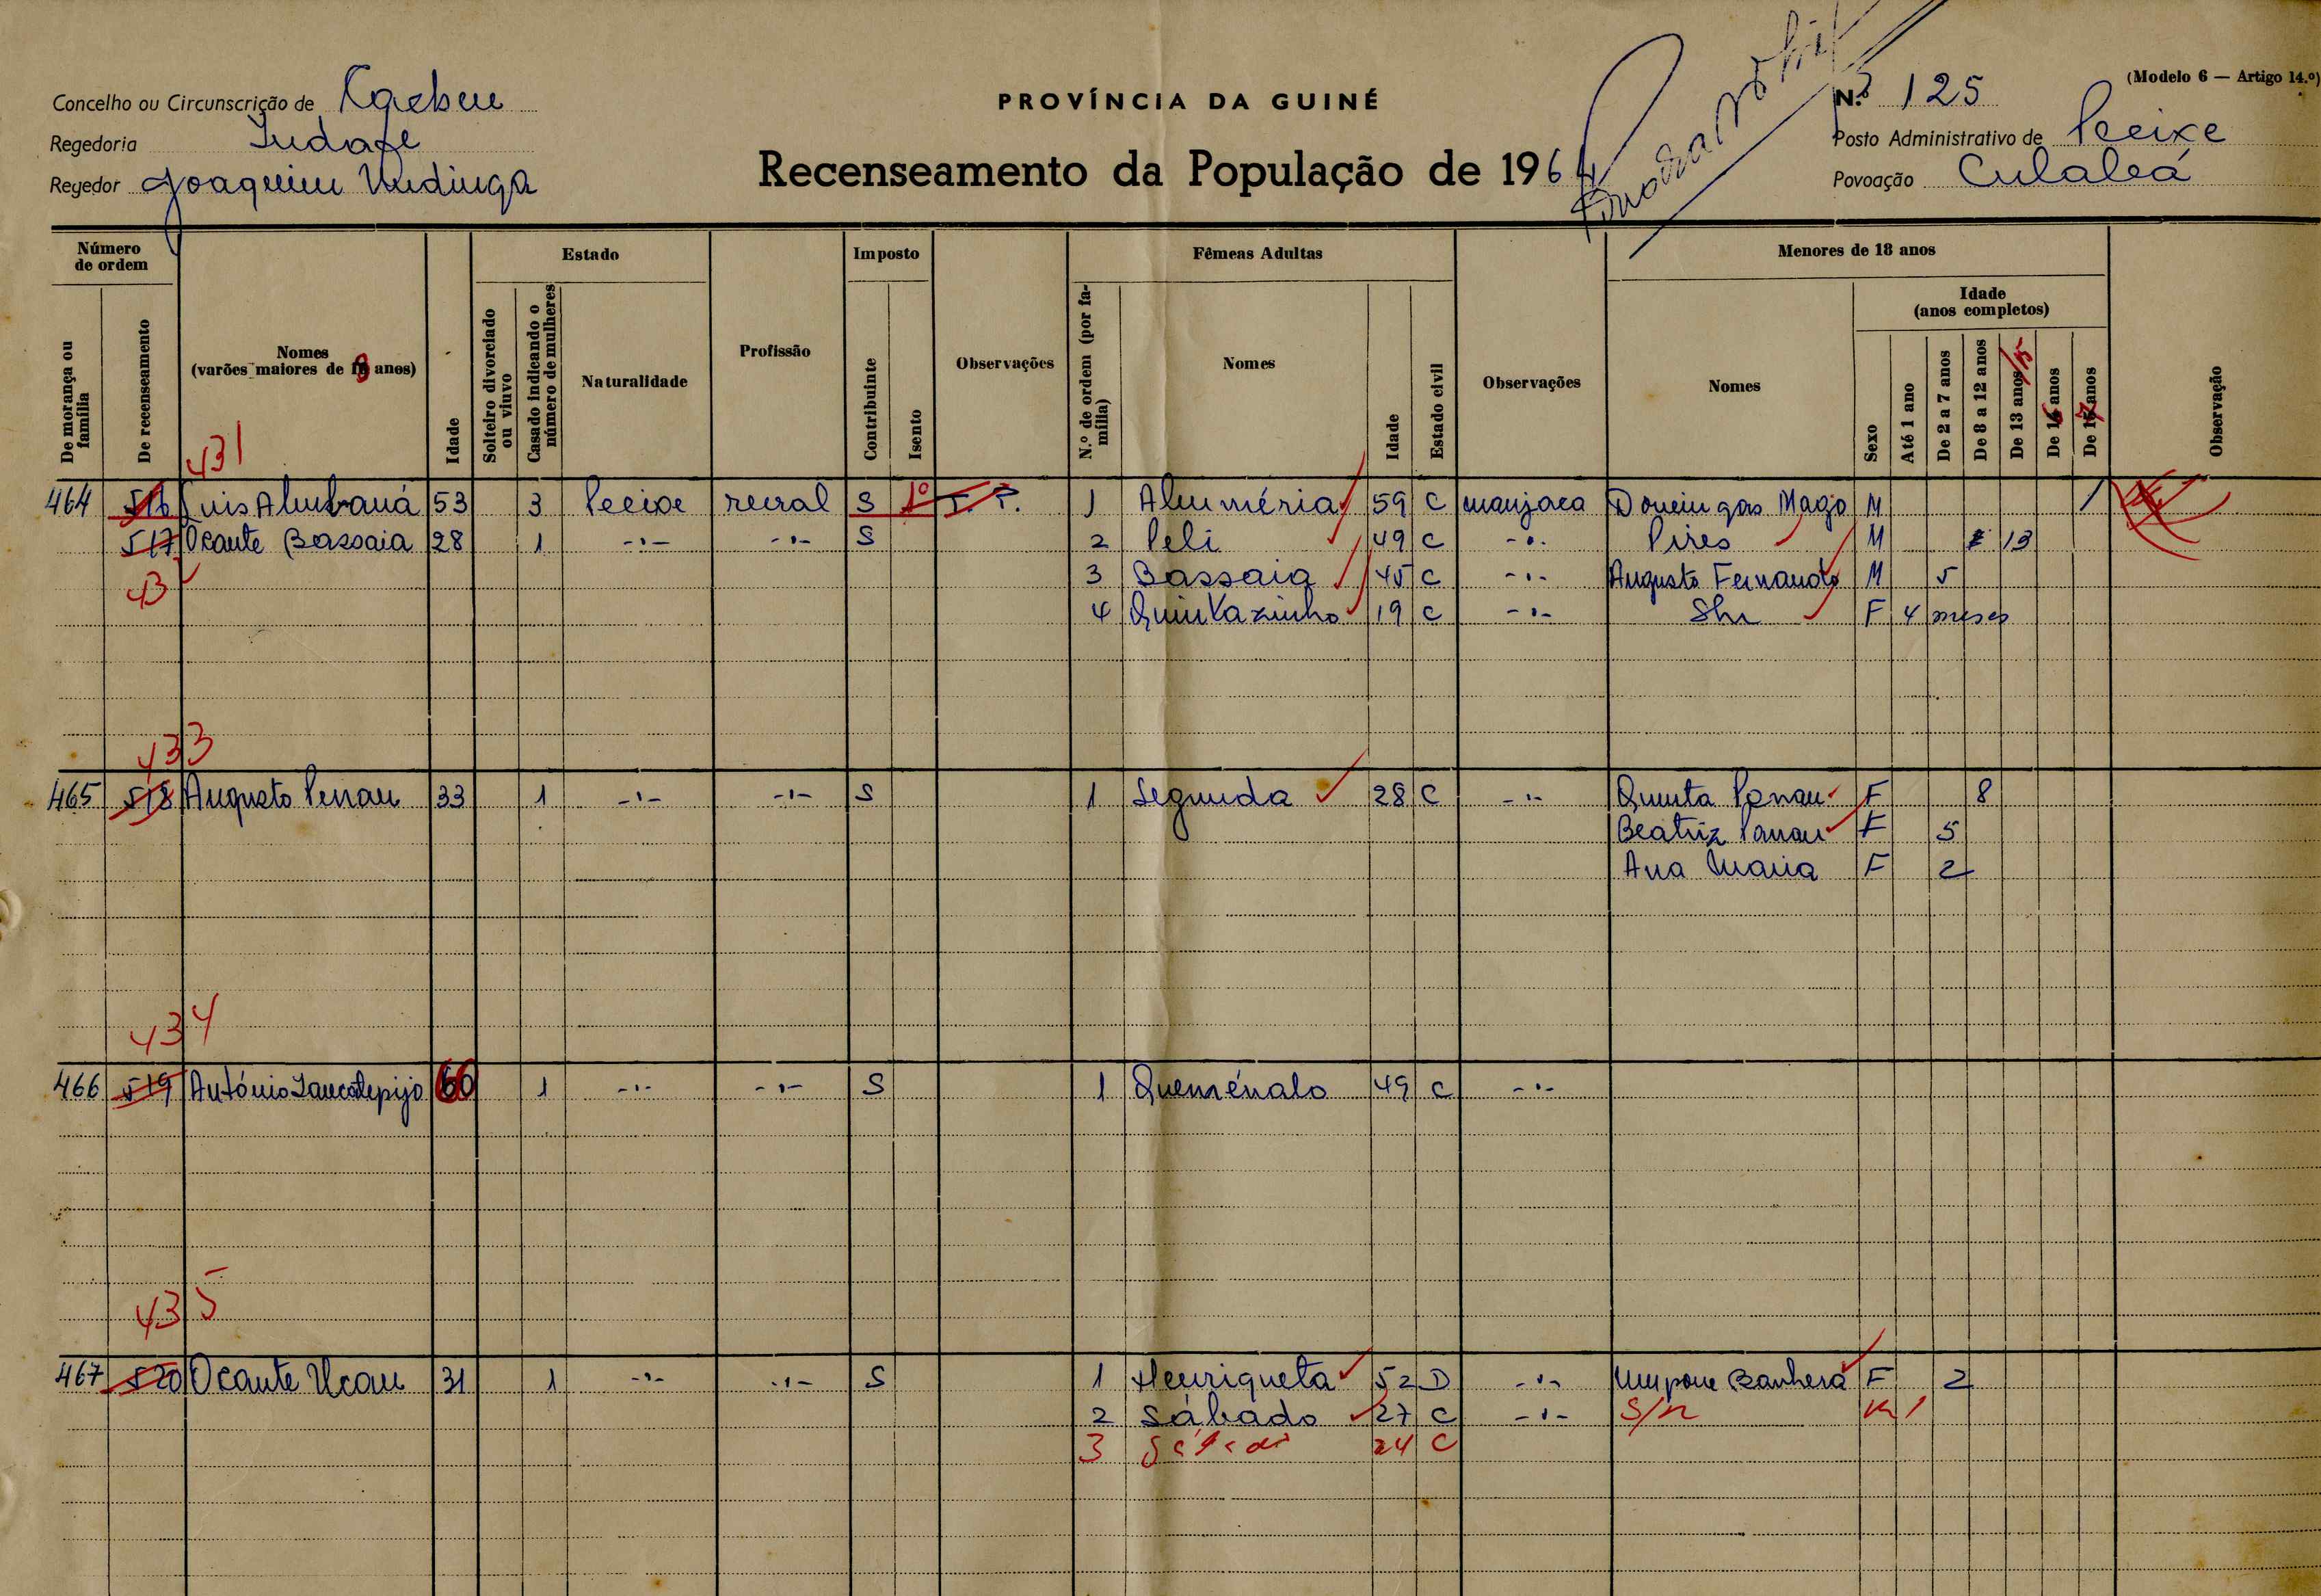 (Modelo 6 — Artigo 14.º)
Concelho ou Circunscrição de
PROVÍNCIA DA GUINÉ
N.º 125
Regedoria
Posto Administrativo de Peeixe
Regedor Joaquim
Recenseamento da População de 1964
Povoação Culaleá
Número de ordem
Estado
Imposto
Fêmeas Adultas
Menores de 18 anos
De morança ou família
De recenseamento
Nomes (varões maiores de anos)
Idade
Solteiro divorciado ou viuvo
Casado indicando o número de mulheres
Naturalidade
Profissão
Contribuinte
Isento
Observações
N.º de ordem (por família)
Nomes
Idade
Estado civil
Observações
Nomes
Idade (anos completos)
Sexo
Até 1 ano
De 2 a 7 anos
De 8 a 12 anos
De 13 anos /15
De anos
De anos
Observação
431
464 516 Luis 53 3 Peeixe rural S 1º 1 59 C manjaca Domingas Mago M /
517 Ocante Bassaia 28 1 -"- -"- S 2 Peli 49 C -"- Pires M 13
43
3 Bassaia 45 C -"- Augusto Fernando M 5
4 19 C -"- F 4 meses
433
465 518 Augusto Penau 33 1 -"- -"- S 1 Segunda 28 C -"- Quinta Penau F 8
Beatriz Panau F 5
Ana Maria F 2
434
466 519 António 60 1 -"- -"- S 1 Quenénalo 49 C -"-
435
467 520 Ocante Ucau 31 1 -"- -"- S 1 Henriqueta 52 D -"- Banherá F 2
2 Sábado 27 C -"- S/n
3 24 C